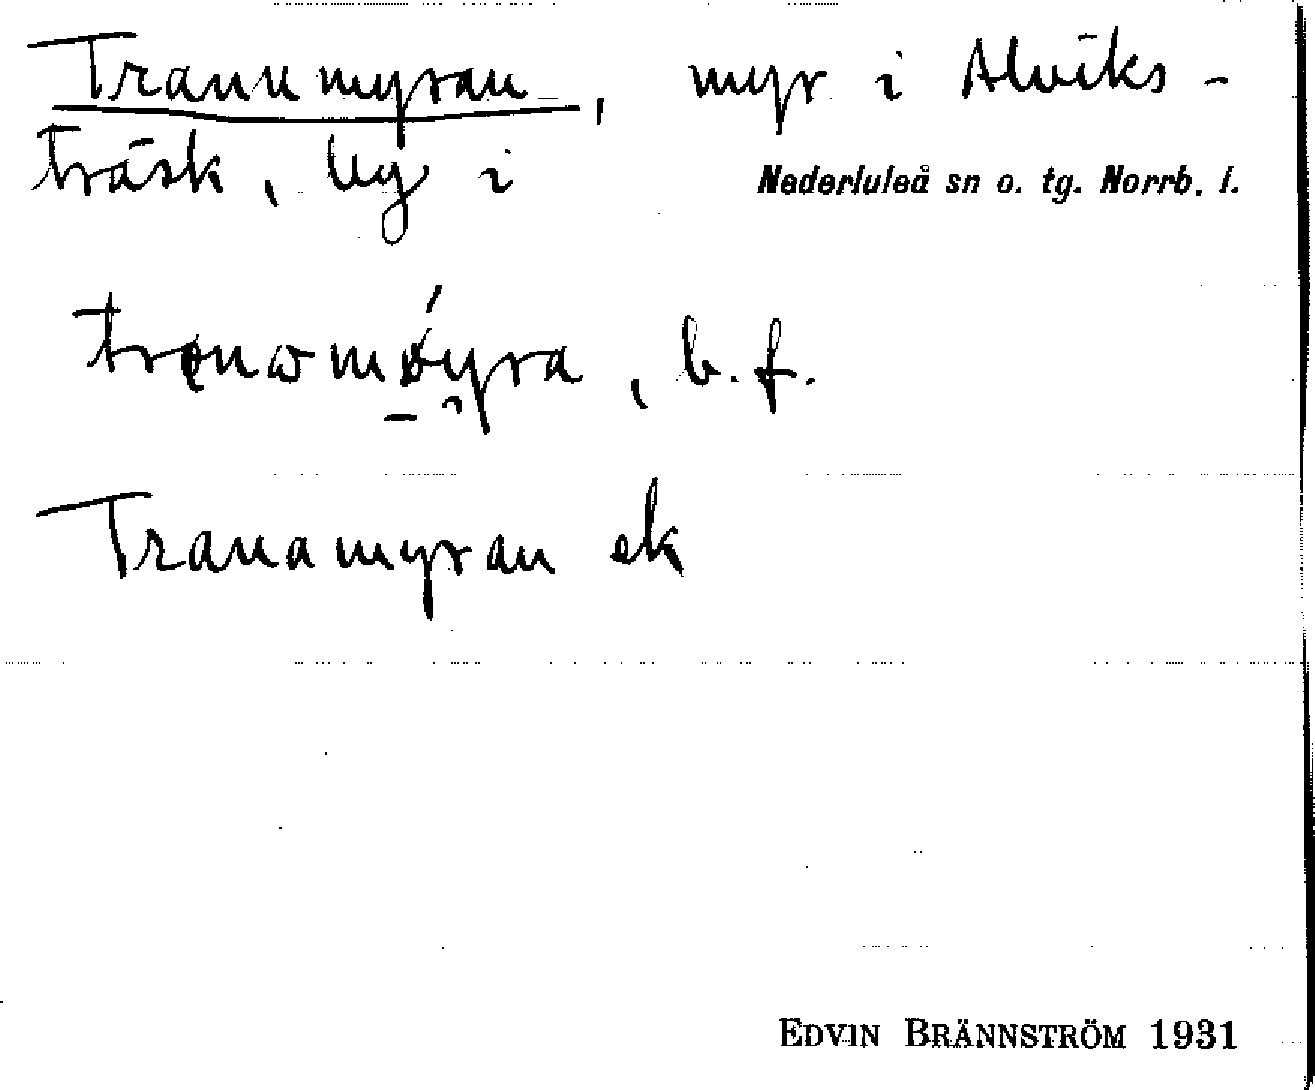 Tranumyran, myr i Alviks-
träsk, by i Nederluleå sn o. tg. Norrb. l.
, b. f.
Tranamyran ek
EDVIN BRÄNNSTRÖM 1931